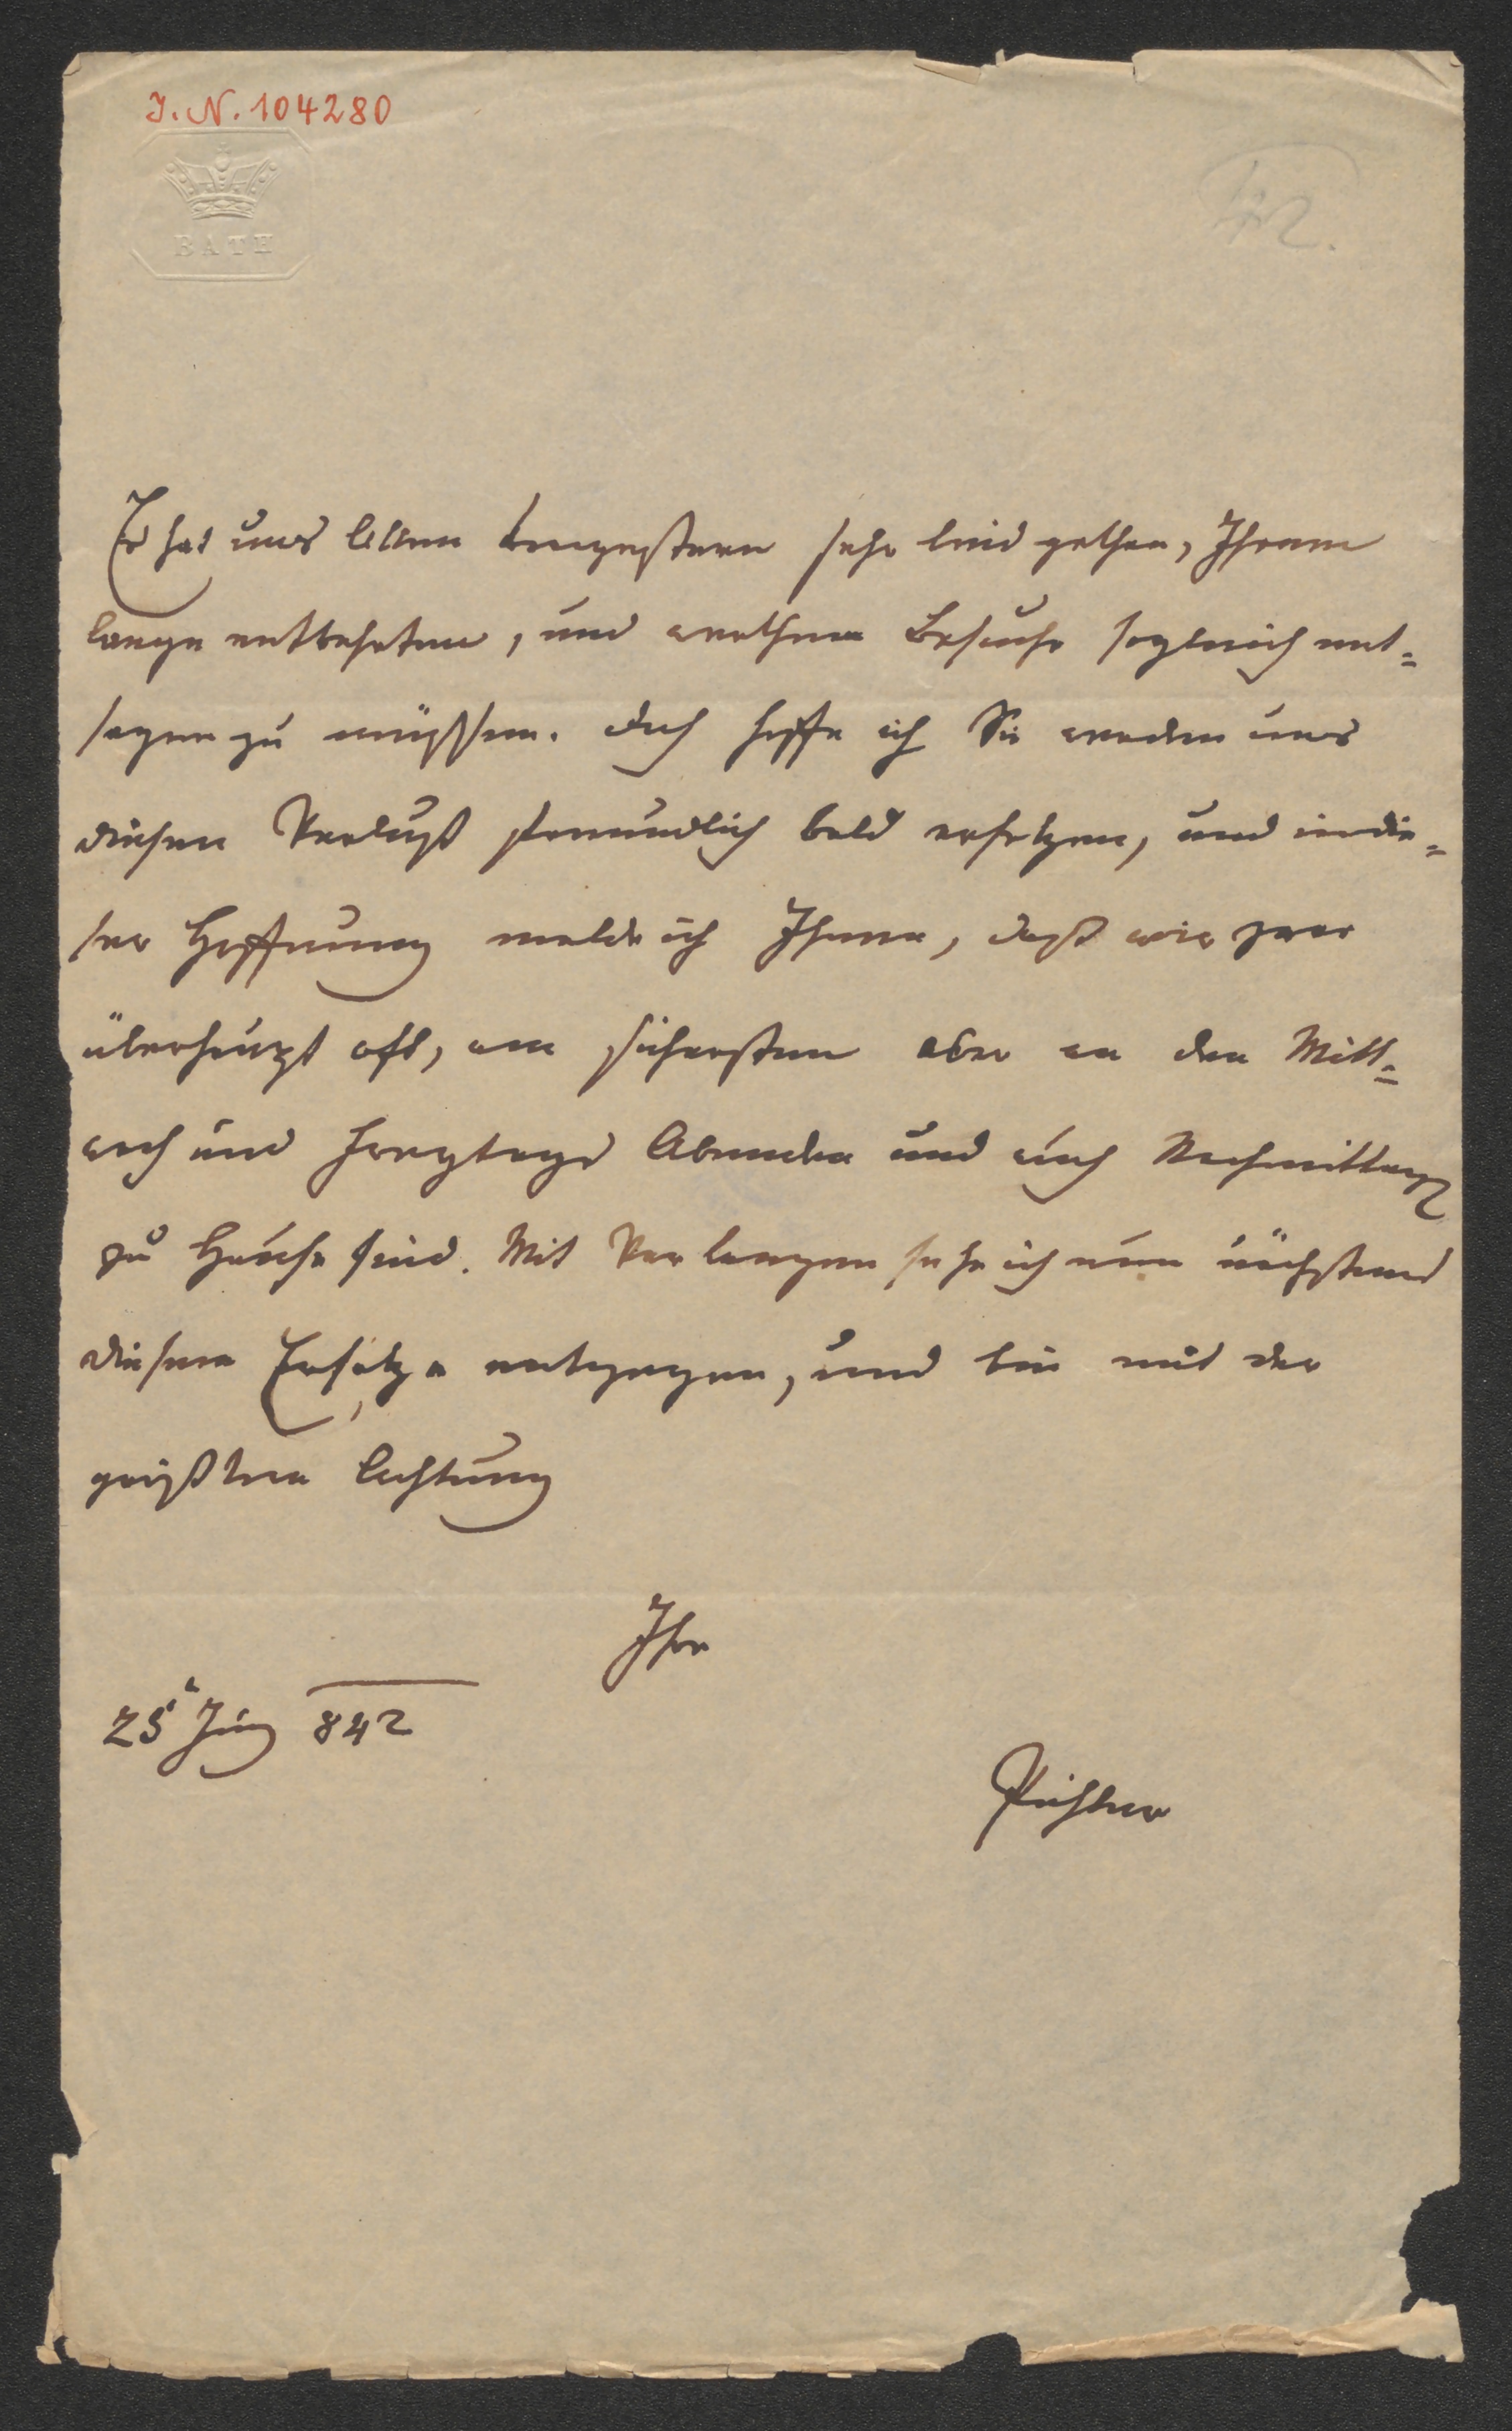 J. N. 104280
BATH
Es hat uns Allen vorgestern sehr leid gethan, Ihrem
lange entbehrten, und werthen Besuche sogleich ent=
sagen zu müssen. Doch hoffe ich Sie werden uns
diesen Verlust freundlich bald ersetzen, und in die=
ser Hoffnung melde ich Ihnen, daß wir zwar
überhaupt oft, am sichersten aber an den Mitt=
woch und Freytags Abenden und auch Nachmittags
zu Hause sind. Mit Verlangen sehe ich nun nächstens
diesem Ersatze entgegen, und bin mit der
größten Achtung
Ihr
25 Juny 842
Pichler